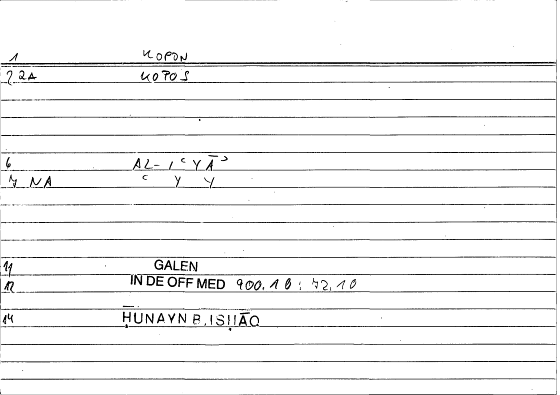 1 KOPON
2 2A KOPOS
6 AL-IʿYĀʾ
7 NA ʿ Y Y
11 GALEN
12 IN DE OFF MED 900.10 : 72.10
14 ḤUNAYN B. ISḤĀQ